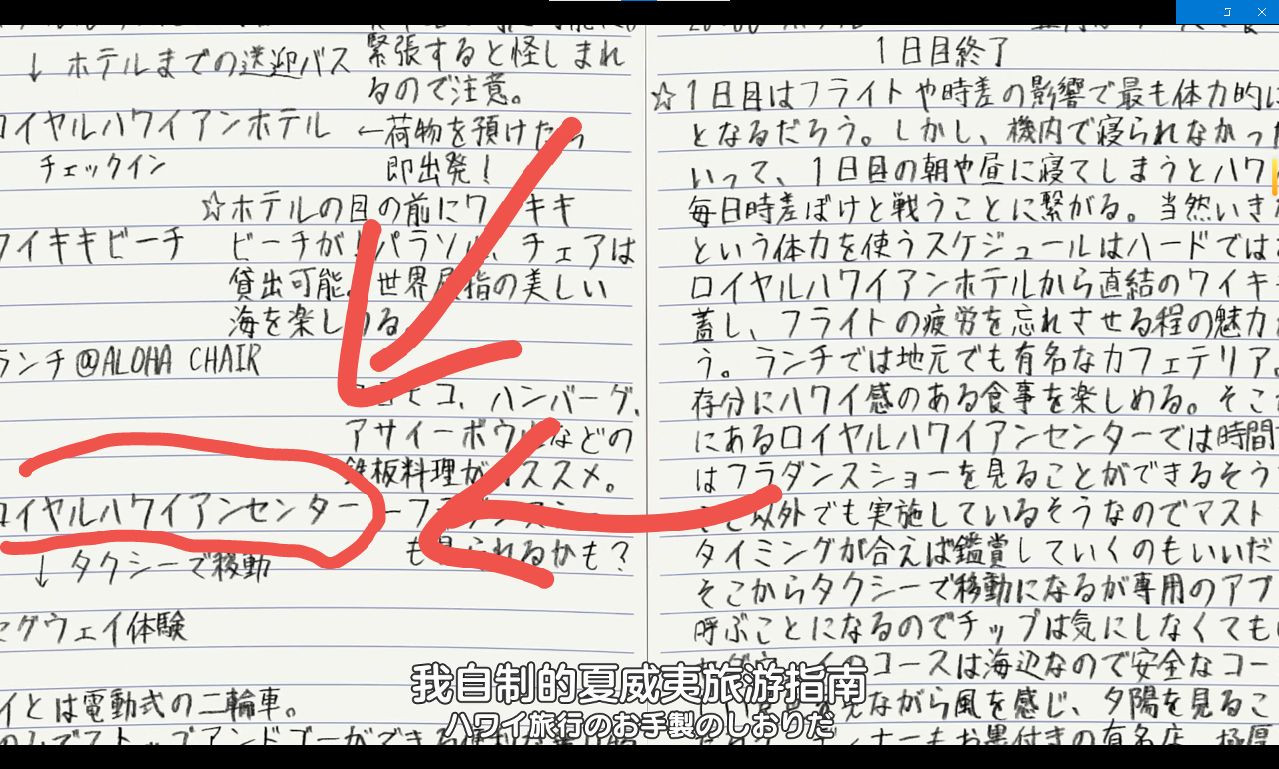 ↓ ホテルまでの送迎バス 緊張すると怪しまれ
るので注意。
ロイヤルハワイアンホテル ←荷物を預けたら
チェックイン 即出発!
☆ホテルの目の前にワイキキ
ワイキキビーチ ビーチが!パラソル、チェアは
貸出可能。世界屈指の美しい
海を楽しめる。
ランチ@ALOHA CHAIR
ロコモコ、ハンバーグ、
アサイーボウルなどの
鉄板料理がオススメ。
ロイヤルハワイアンセンター ←フラダンスショー
も見られるかも?
↓ タクシーで移動
セグウェイ体験
イとは電動式の二輪車。
1日目終了
☆1日目はフライトや時差の影響で最も体力的に
となるだろう。しかし、機内で寝られなかった
いって、1日目の朝や昼に寝てしまうとハワ
毎日時差ぼけと戦うことに繋がる。当然いき
という体力を使うスケジュールはハードでは
ロイヤルハワイアンホテルから直結のワイキ
蓋し、フライトの疲労を忘れさせる程の魅力
う。ランチでは地元でも有名なカフェテリア。
存分にハワイ感のある食事を楽しめる。そこ
にあるロイヤルハワイアンセンターでは時間
はフラダンスショーを見ることができるそう
ここ以外でも実施しているそうなのでマスト
タイミングが合えば鑑賞していくのもいいだ
そこからタクシーで移動になるが専用のアプ
呼ぶことになるのでチップは気にしなくても
のコースは海辺なので安全なコー
ながら風を感じ、夕陽を見るこ
ディナーもお墨付きの有名店、極厚
我自制的夏威夷旅游指南
ハワイ旅行のお手製のしおりだ